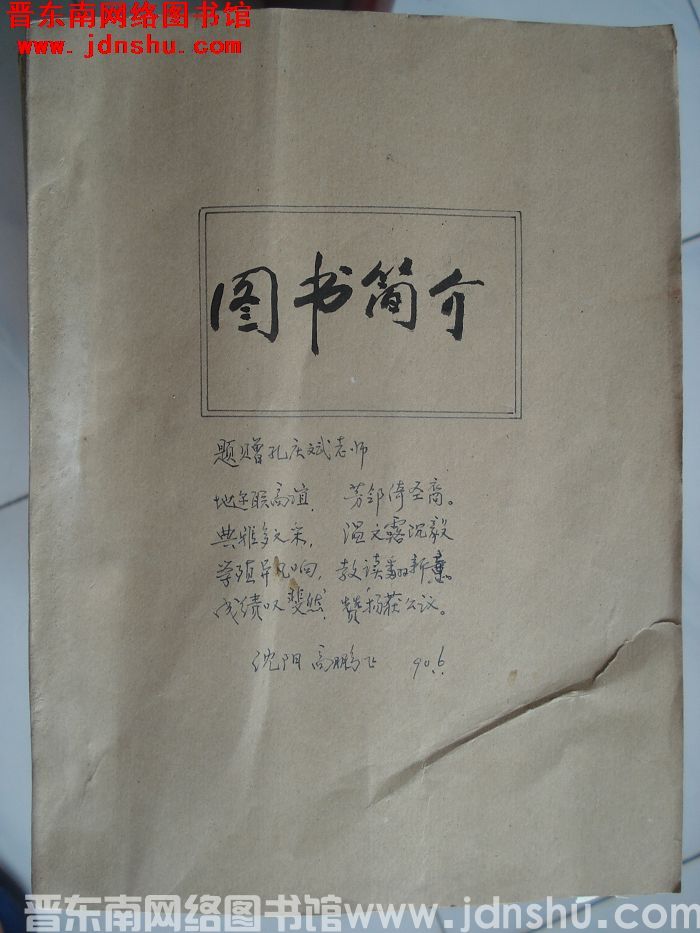 晋东南网络图书馆
www.jdnshu.com
图书简介
题赠孔庆斌老师
地近联高谊，芳邻倚圣裔。
典雅多文采，温文露沉毅
学殖异凡响，教读翻新意。
成绩以斐然，赞扬获公议。
沈阳 高鹏飞 90.6.
晋东南网络图书馆 www.jdnshu.com